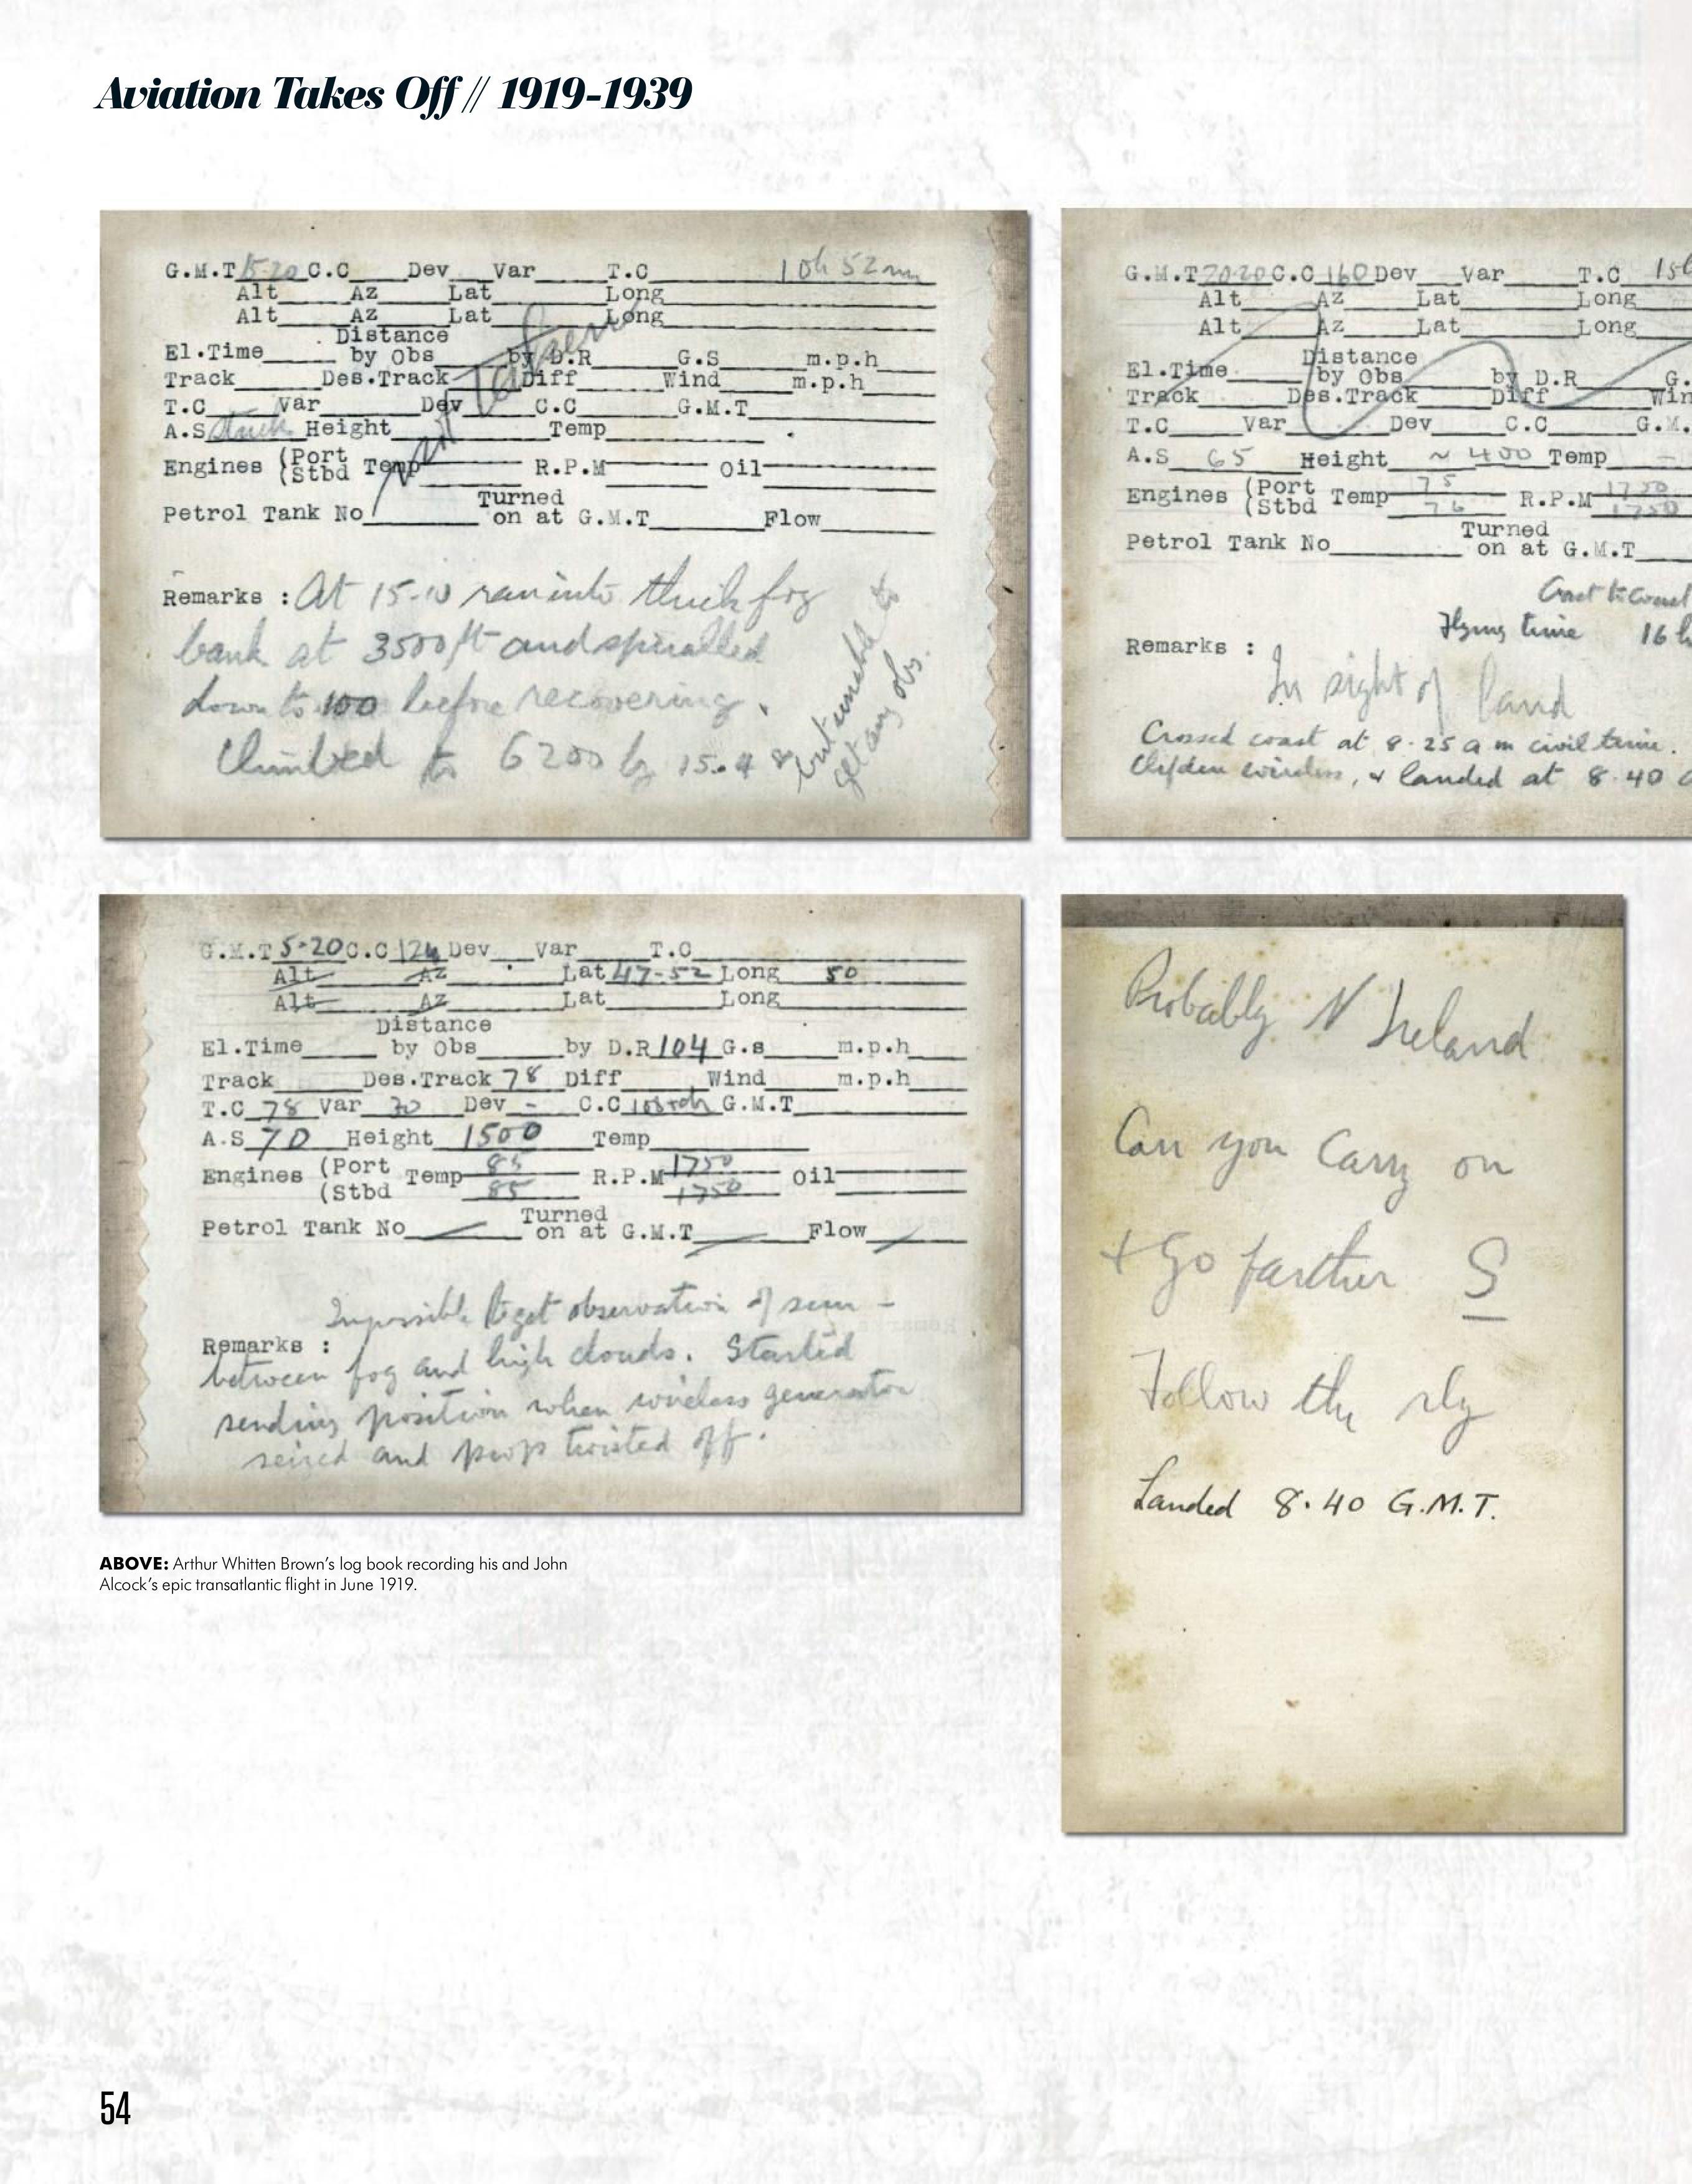 Aviation Takes Off // 1919-1939
G.M.T 15-20 C.C Dev Var T.C 10h 52m
Alt Az Lat Long
Alt Az Lat Long
Distance
El.Time by Obs by D.R G.S m.p.h
Track Des.Track Diff Wind m.p.h
T.C Var Dev C.C G.M.T
A.S Height Temp
Engines (Port
(Stbd Temp R.P.M Oil
Turned
Petrol Tank No on at G.M.T Flow
Remarks : At 15-10 ran into thick fog
bank at 3500 ft and spiralled
down to 100 before recovering.
Climbed to 6200 by 15.4 &
but unable to
get any obs.
G.M.T 20-20 C.C 160 Dev Var T.C
Alt Az Lat Long
Alt Az Lat Long
Distance
El.Time by Obs by D.R G.
Track Des.Track Diff Win
T.C Var Dev C.C G.M.
A.S 65 Height ~ 400 Temp -
Engines (Port
(Stbd Temp 75 76 R.P.M 1750 1750
Turned
Petrol Tank No on at G.M.T
Coast to Coast
Flying time 16 h
Remarks :
In sight of land
Crossed coast at 8-25 a m civil time.
Clifden wireless, & landed at 8-40 a
G.M.T 5-20 C.C 124 Dev Var T.C
Alt Az Lat 47-52 Long 50
Alt Az Lat Long
Distance
El.Time by Obs by D.R 104 G.s m.p.h
Track Des.Track 78 Diff Wind m.p.h
T.C 78 Var 30 Dev - C.C G.M.T
A.S 70 Height 1500 Temp
Engines (Port
(Stbd Temp 85 85 R.P.M 1750 1750 Oil
Turned
Petrol Tank No on at G.M.T Flow
Impossible to get observation of sun -
Remarks :
between fog and high clouds. Started
sending position when wireless generator
seized and prop twisted off.
Probably N Ireland
Can you carry on
+ Go farther S
Follow the rly
Landed 8.40 G.M.T.
ABOVE: Arthur Whitten Brown's log book recording his and John
Alcock's epic transatlantic flight in June 1919.
54